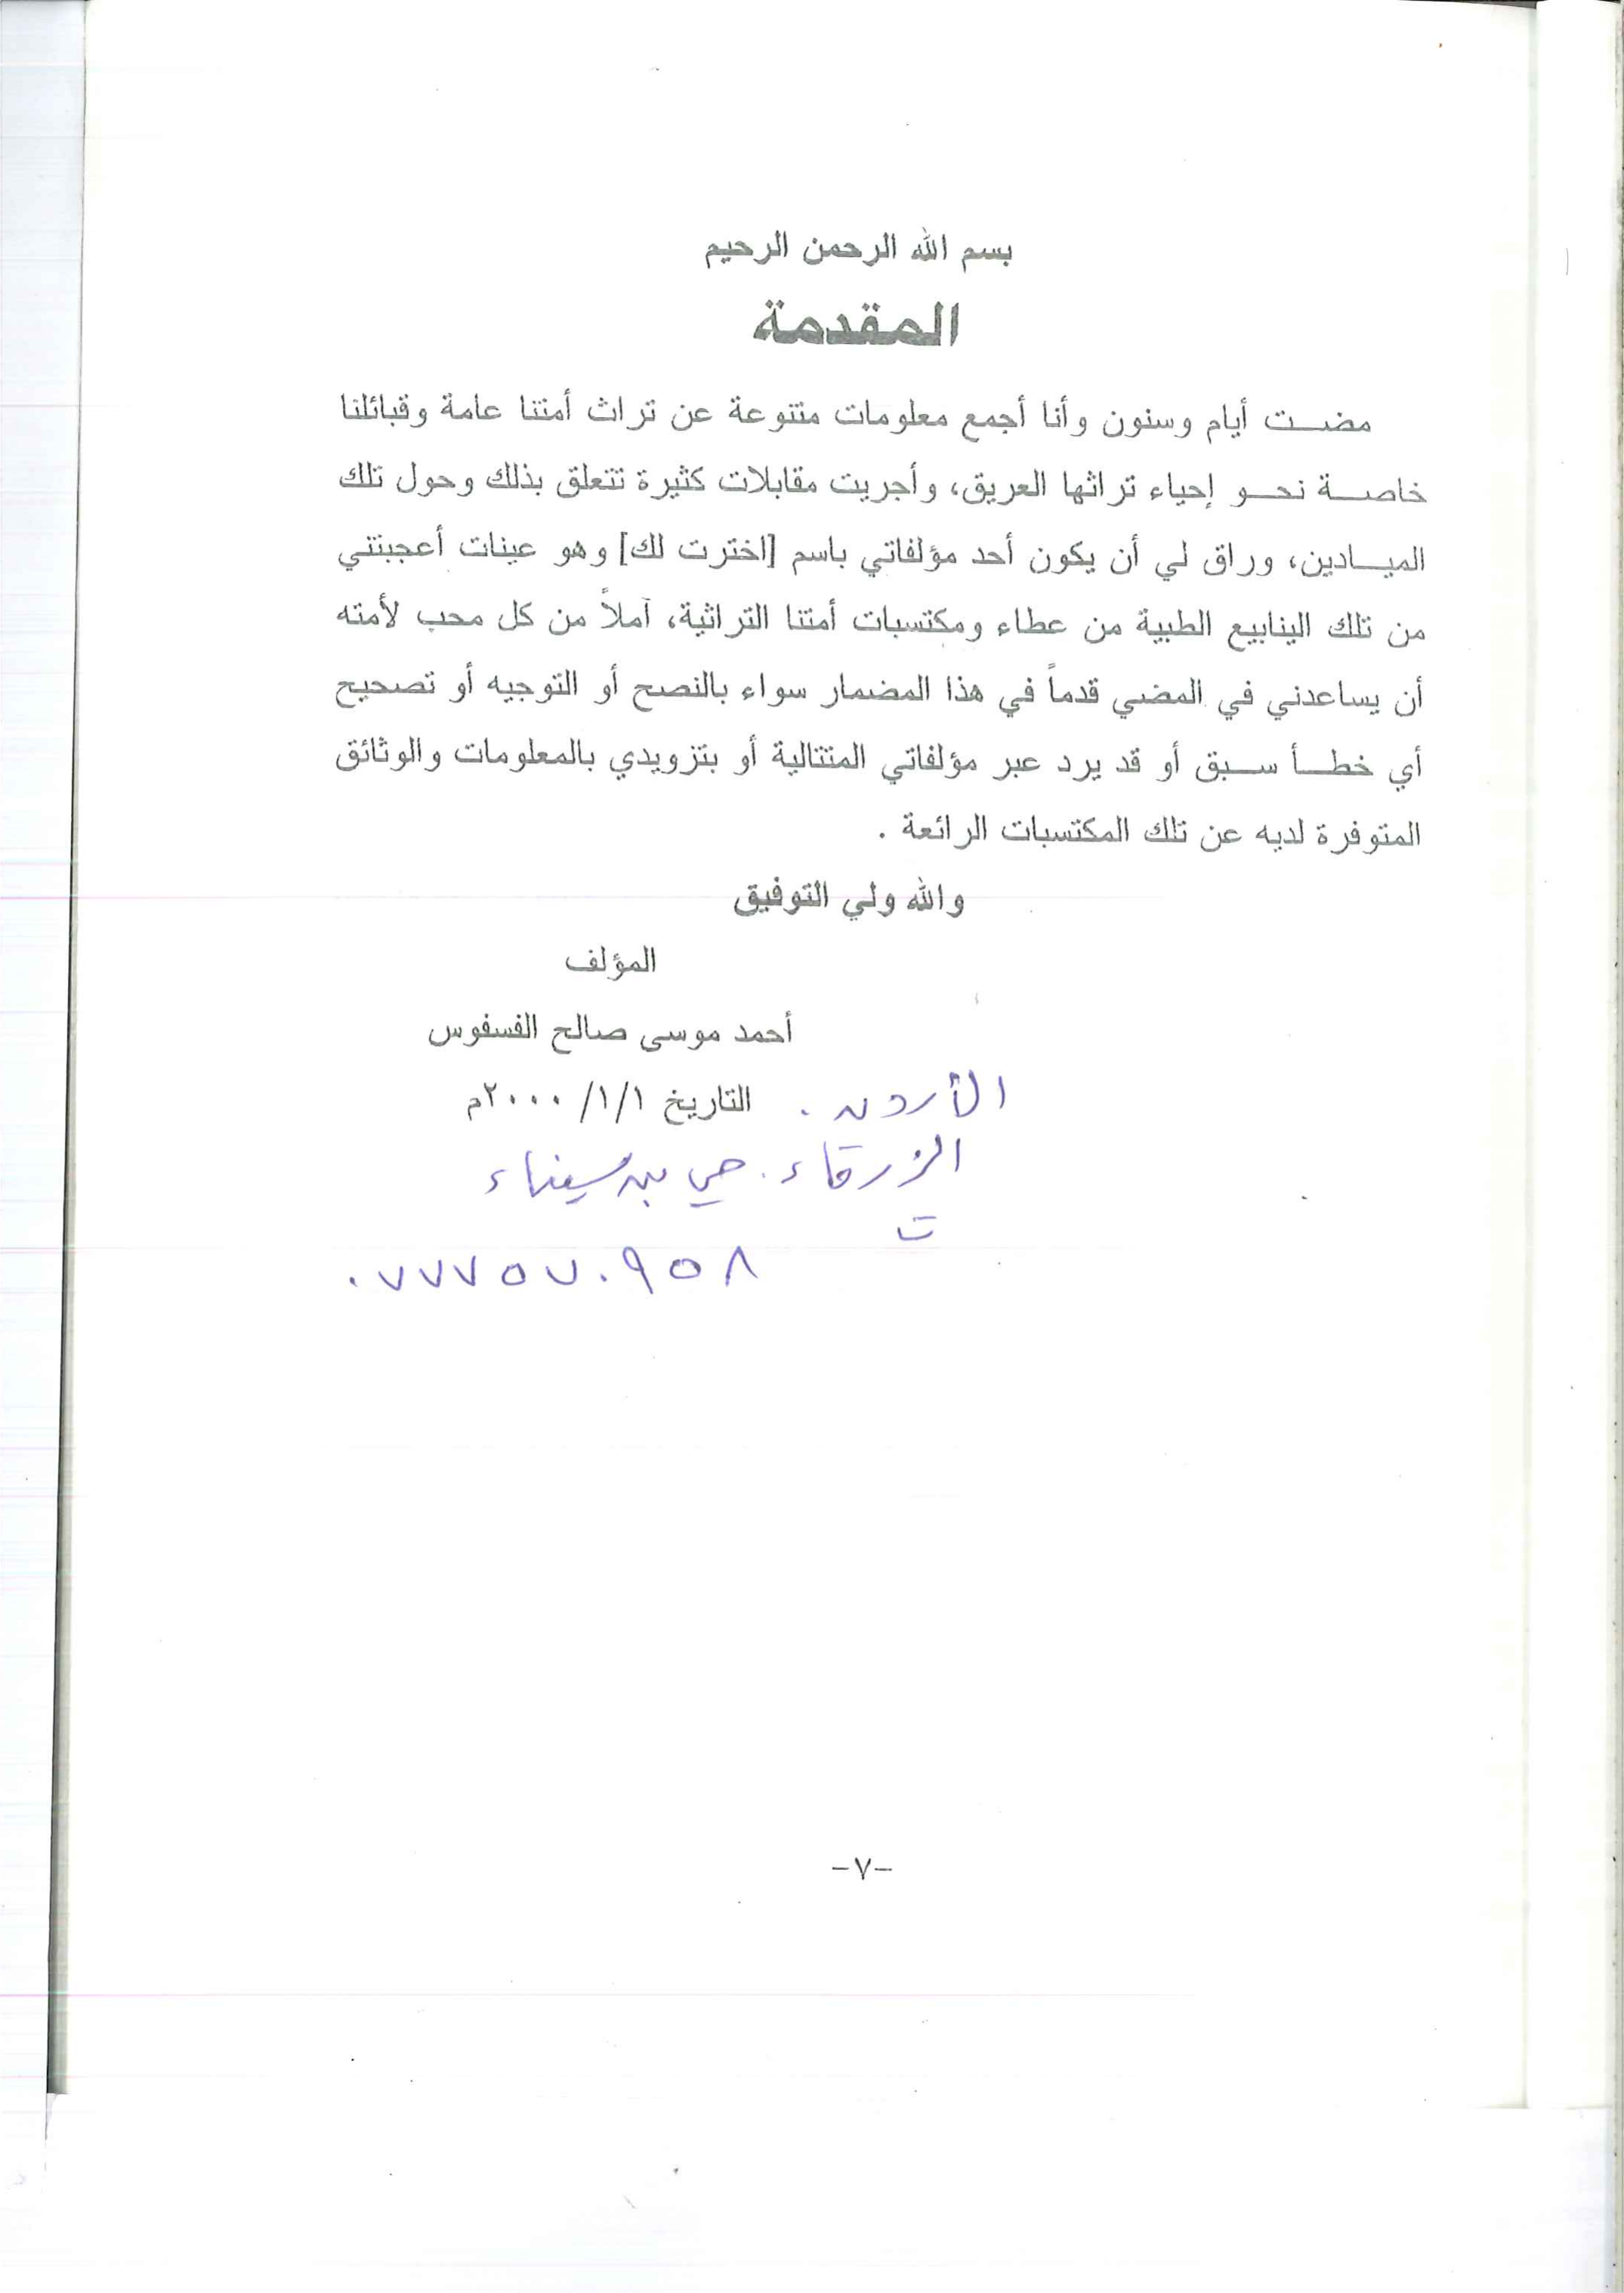 بسم الله الرحمن الرحيم
المقدمة
مضت أيام وسنون وأنا أجمع معلومات متنوعة عن تراث أمتنا عامة وقبائلنا
خاصة نحو إحياء تراثها العريق، وأجريت مقابلات كثيرة تتعلق بذلك وحول تلك
الميادين، وراق لي أن يكون أحد مؤلفاتي باسم [اخترت لك] وهو عينات أعجبتني
من تلك الينابيع الطيبة من عطاء ومكتسبات أمتنا التراثية، آملاً من كل محب لأمته
أن يساعدني في المضي قدماً في هذا المضمار سواء بالنصح أو التوجيه أو تصحيح
أي خطأ سبق أو قد يرد عبر مؤلفاتي المتتالية أو بتزويدي بالمعلومات والوثائق
المتوفرة لديه عن تلك المكتسبات الرائعة .
والله ولي التوفيق
المؤلف
أحمد موسى صالح الفسفوس
الأردن . التاريخ ١/١/ ٢٠٠٠م
الزرقاء . حي بن سيناء
ت
٠٧٧٧٥٧٠٩٥٨
-٧-